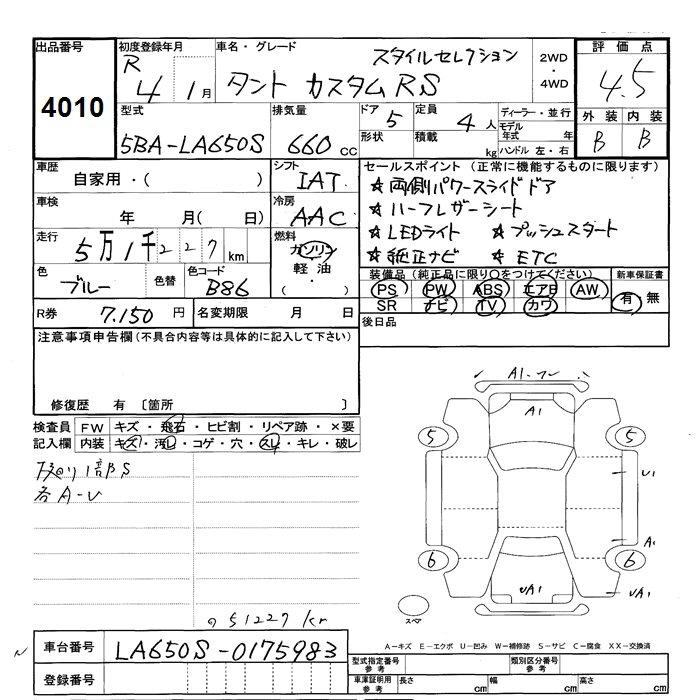 出品番号 初度登録年月 車名・グレード スタイルセレクション 2WD・4WD 評価点
4010 R 4 1月 タント カスタムRS 4.5
型式 排気量 ドア 5 定員 4人 ディーラー・並行 外装 内装
5BA-LA650S 660cc 形状 積載 kg モデル年式 年 B B
ハンドル 左・右
車歴 シフト セールスポイント (正常に機能するものに限ります)
自家用・( ) IAT ☆両側パワースライドドア
車検 冷房 ☆ハーフレザーシート
年 月( 日) AAC ☆LEDライト ☆プッシュスタート
走行 燃料 ☆純正ナビ ☆ETC
5万1千227km ガソリン
軽油
・
( )
色 色替 色コード 装備品(純正品に限り○をつけてください) 新車保証書
ブルー B86 PS PW ABS エアB AW 有 無
SR ナビ TV カワ
R券 7.150円 名変期限 月 日 後日品
注意事項申告欄(不具合内容等は具体的に記入して下さい)
修復歴 有 〔箇所 〕
検査員 FW キズ・飛石・ヒビ割・リペア跡・×要
記入欄 内装 キズ・汚レ・コゲ・穴・スレ・キレ・破レ
下廻り1部S
各A-U
A1
A1
5 5
U1
A1
6 6
UA1 UA1
スペア
51227km
A-キズ E-エクボ U-凹み W-補修跡 S-サビ C-腐食 XX-交換済
車台番号 LA650S-0175983
登録番号
型式指定番号 参考 類別区分番号 参考
車庫証明用 参考 長さ cm 幅 cm 高さ cm